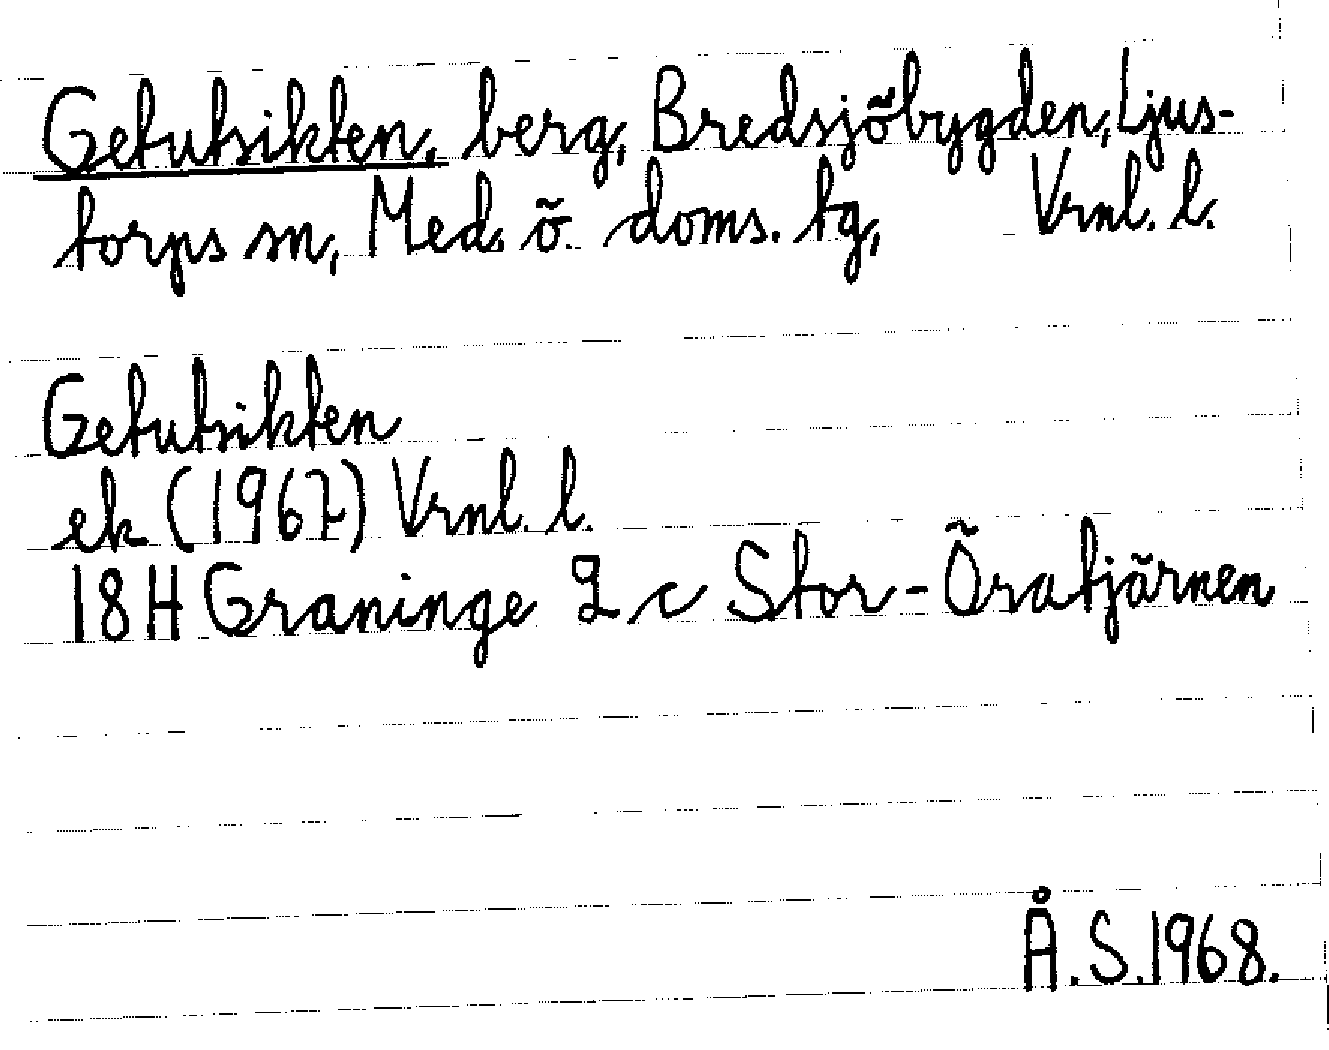 Getutsikten, berg, Bredsjöbygden, Ljus-
torps sn, Med. ö doms. tg, Vrnl. l.
Getutsikten
ek (1967) Vrnl. l.
18H Graninge 2 c Stor-Öratjärnen
Å.S.1968.